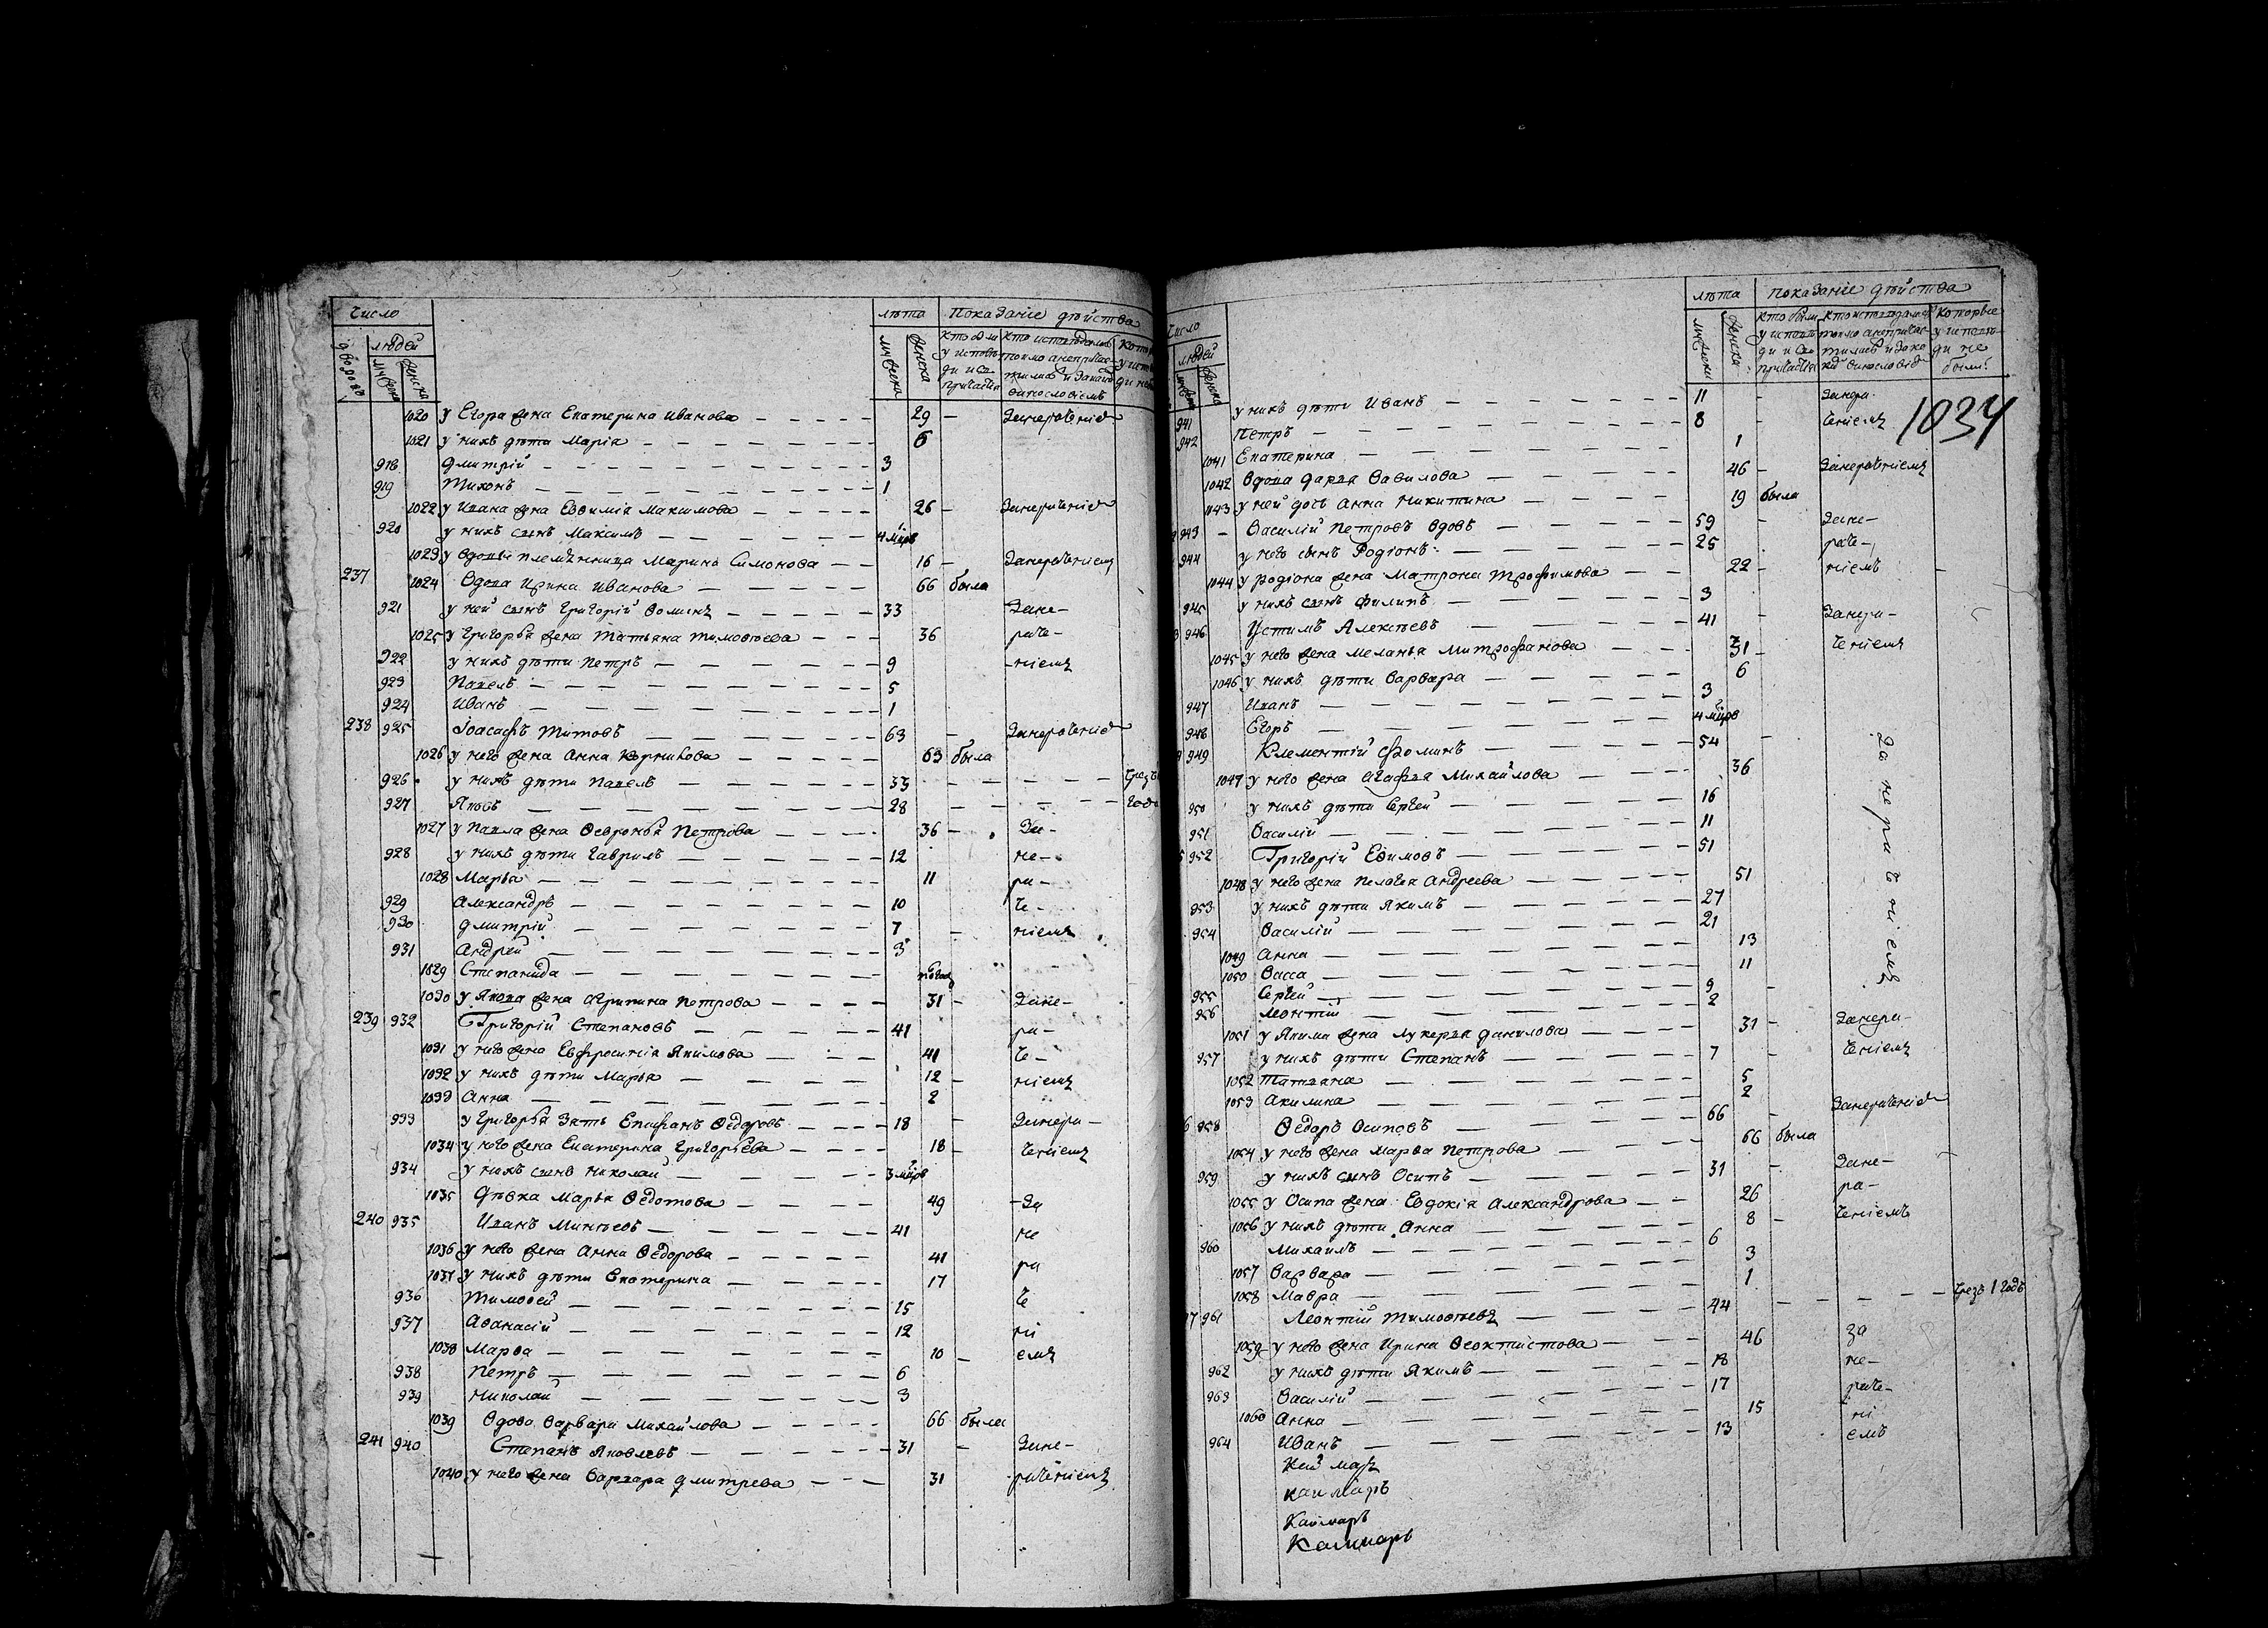 Число
Людей
лѣта
Показаніе дѣйства
дворовъ
мужеска
женска
мужеска
женска
1020 у Егора жена Екатерина Иванова 29 Занераченіе
1021 у нихъ дѣти Марія 6
918 Дмитрій 3
919 Тихонъ 1
1022 у Ивана жена Евѳимія Максимова 26 Занераченіе
920 у нихъ сынъ Максимъ
1023 у вдовы племянница Марина Симонова 16 Занераченіемъ
237 1024 Вдова Ирина Иванова 66 была
921 у ней сынъ Григорій Ѳоминъ 33 Зане-
1025 у Григорья жена Татьяна Тимоѳеева 36 раче-
922 у нихъ дѣти Петръ 9 -ніемъ
923 Павелъ 5
924 Иванъ 1
238 925 Іоасафъ Титовъ 63 Занераченіе
1026 у него жена Анна 63 была
926 у нихъ дѣти Павелъ 33 Чрезъ
927 Яковъ 28
1027 у Павла жена Ѳевронья Петрова 36 За-
928 у нихъ дѣти Гаврилъ 12 не-
1028 Марья 11 ра-
929 Александръ 10 че-
930 Дмитрій 7 ніемъ
931 Андрей 3
1029 Степанида
1030 у Якова жена Агрипина Петрова 31 Зане-
239 932 Григорій Степановъ 41 ра-
1031 у него жена Евфросинія Якимова 41 че-
1032 у нихъ дѣти Марья 12 ніемъ
1033 Анна 2
933 у Григорья зять Епифанъ Ѳедоровъ 18 Занера-
1034 у него жена Екатерина Григорьева 18 ченіемъ
934 у нихъ сынъ Николай
1035 Дѣвка Марья Ѳедотова 49 -За
240 935 Иванъ Минѣевъ 41 не
1036 у него жена Анна Ѳедорова 41 ра
1037 у нихъ дѣти Екатерина 17
936 Тимоѳей 15 че
937 Аѳанасій 12 ні
1038 Марѳа 10 емъ
938 Петръ 6
939 Николай 3
1039 Вдова Варвара Михайлова 66 была
241 940 Степанъ Яковлевъ 31 Зане-
1040 у него жена Варвара Дмитрева 31 раченіемъ
Число
Людей
лѣта
Показаніе дѣйства
мужеска
женска
1034
941 у нихъ дѣти Иванъ 11 Занера-
942 Петръ 8 ченіемъ
1041 Екатерина 1
1042 Вдова Дарья Вавилова 46 Занераченіемъ
1043 у ней дочь Анна Никитина 19 была
943 Василій Петровъ вдовъ 59 Зане-
944 у него сынъ Родіонъ 25 раче-
1044 у Родіона жена Матрона Трофимова 22 ніемъ
945 у нихъ сынъ Филипъ 3
946 Устимъ Алексѣевъ 41 Занера-
1045 у него жена Меланья Митрофанова 31 ченіемъ
1046 у нихъ дѣти Варвара 6
947 Иванъ 3
948 Егоръ
949 Клементій Фоминъ 54
1047 у него жена Агафья Михайлова 36
950 у нихъ дѣти Сергей 16
951 Василій 11
952 Григорій Ефимовъ 51
1048 у него жена Пелагея Андреева 51
953 у нихъ дѣти Якимъ 27
954 Василій 21
1049 Анна 13
1050 Васса 11
955 Сергей 9
956 Леонтій 2
Занераченіемъ
1051 у Якима жена Лукерья Данилова 31 Занера-
957 у нихъ дѣти Степанъ 7 ченіемъ
1052 Татьяна 5
1053 Акилина 2
958 Ѳедоръ Осиповъ 66 Занераченіе
1054 у него жена Марѳа Петрова 66 была
959 у нихъ сынъ Осипъ 31 Зане-
1055 у Осипа жена Евдокія Александрова 26 ра-
1056 у нихъ дѣти Анна 8 ченіемъ
960 Михаилъ 6
1057 Варвара 3
1058 Мавра 1
961 Леонтій Тимоѳеевъ 44 Чрезъ 1 годъ
1059 у него жена Ирина Ѳеоктистова 46 За
962 у нихъ дѣти Якимъ 18 не-
963 Василій 17 раче-
1060 Анна 15 ні
964 Иванъ 13 емъ
Каймаръ
Каймаръ